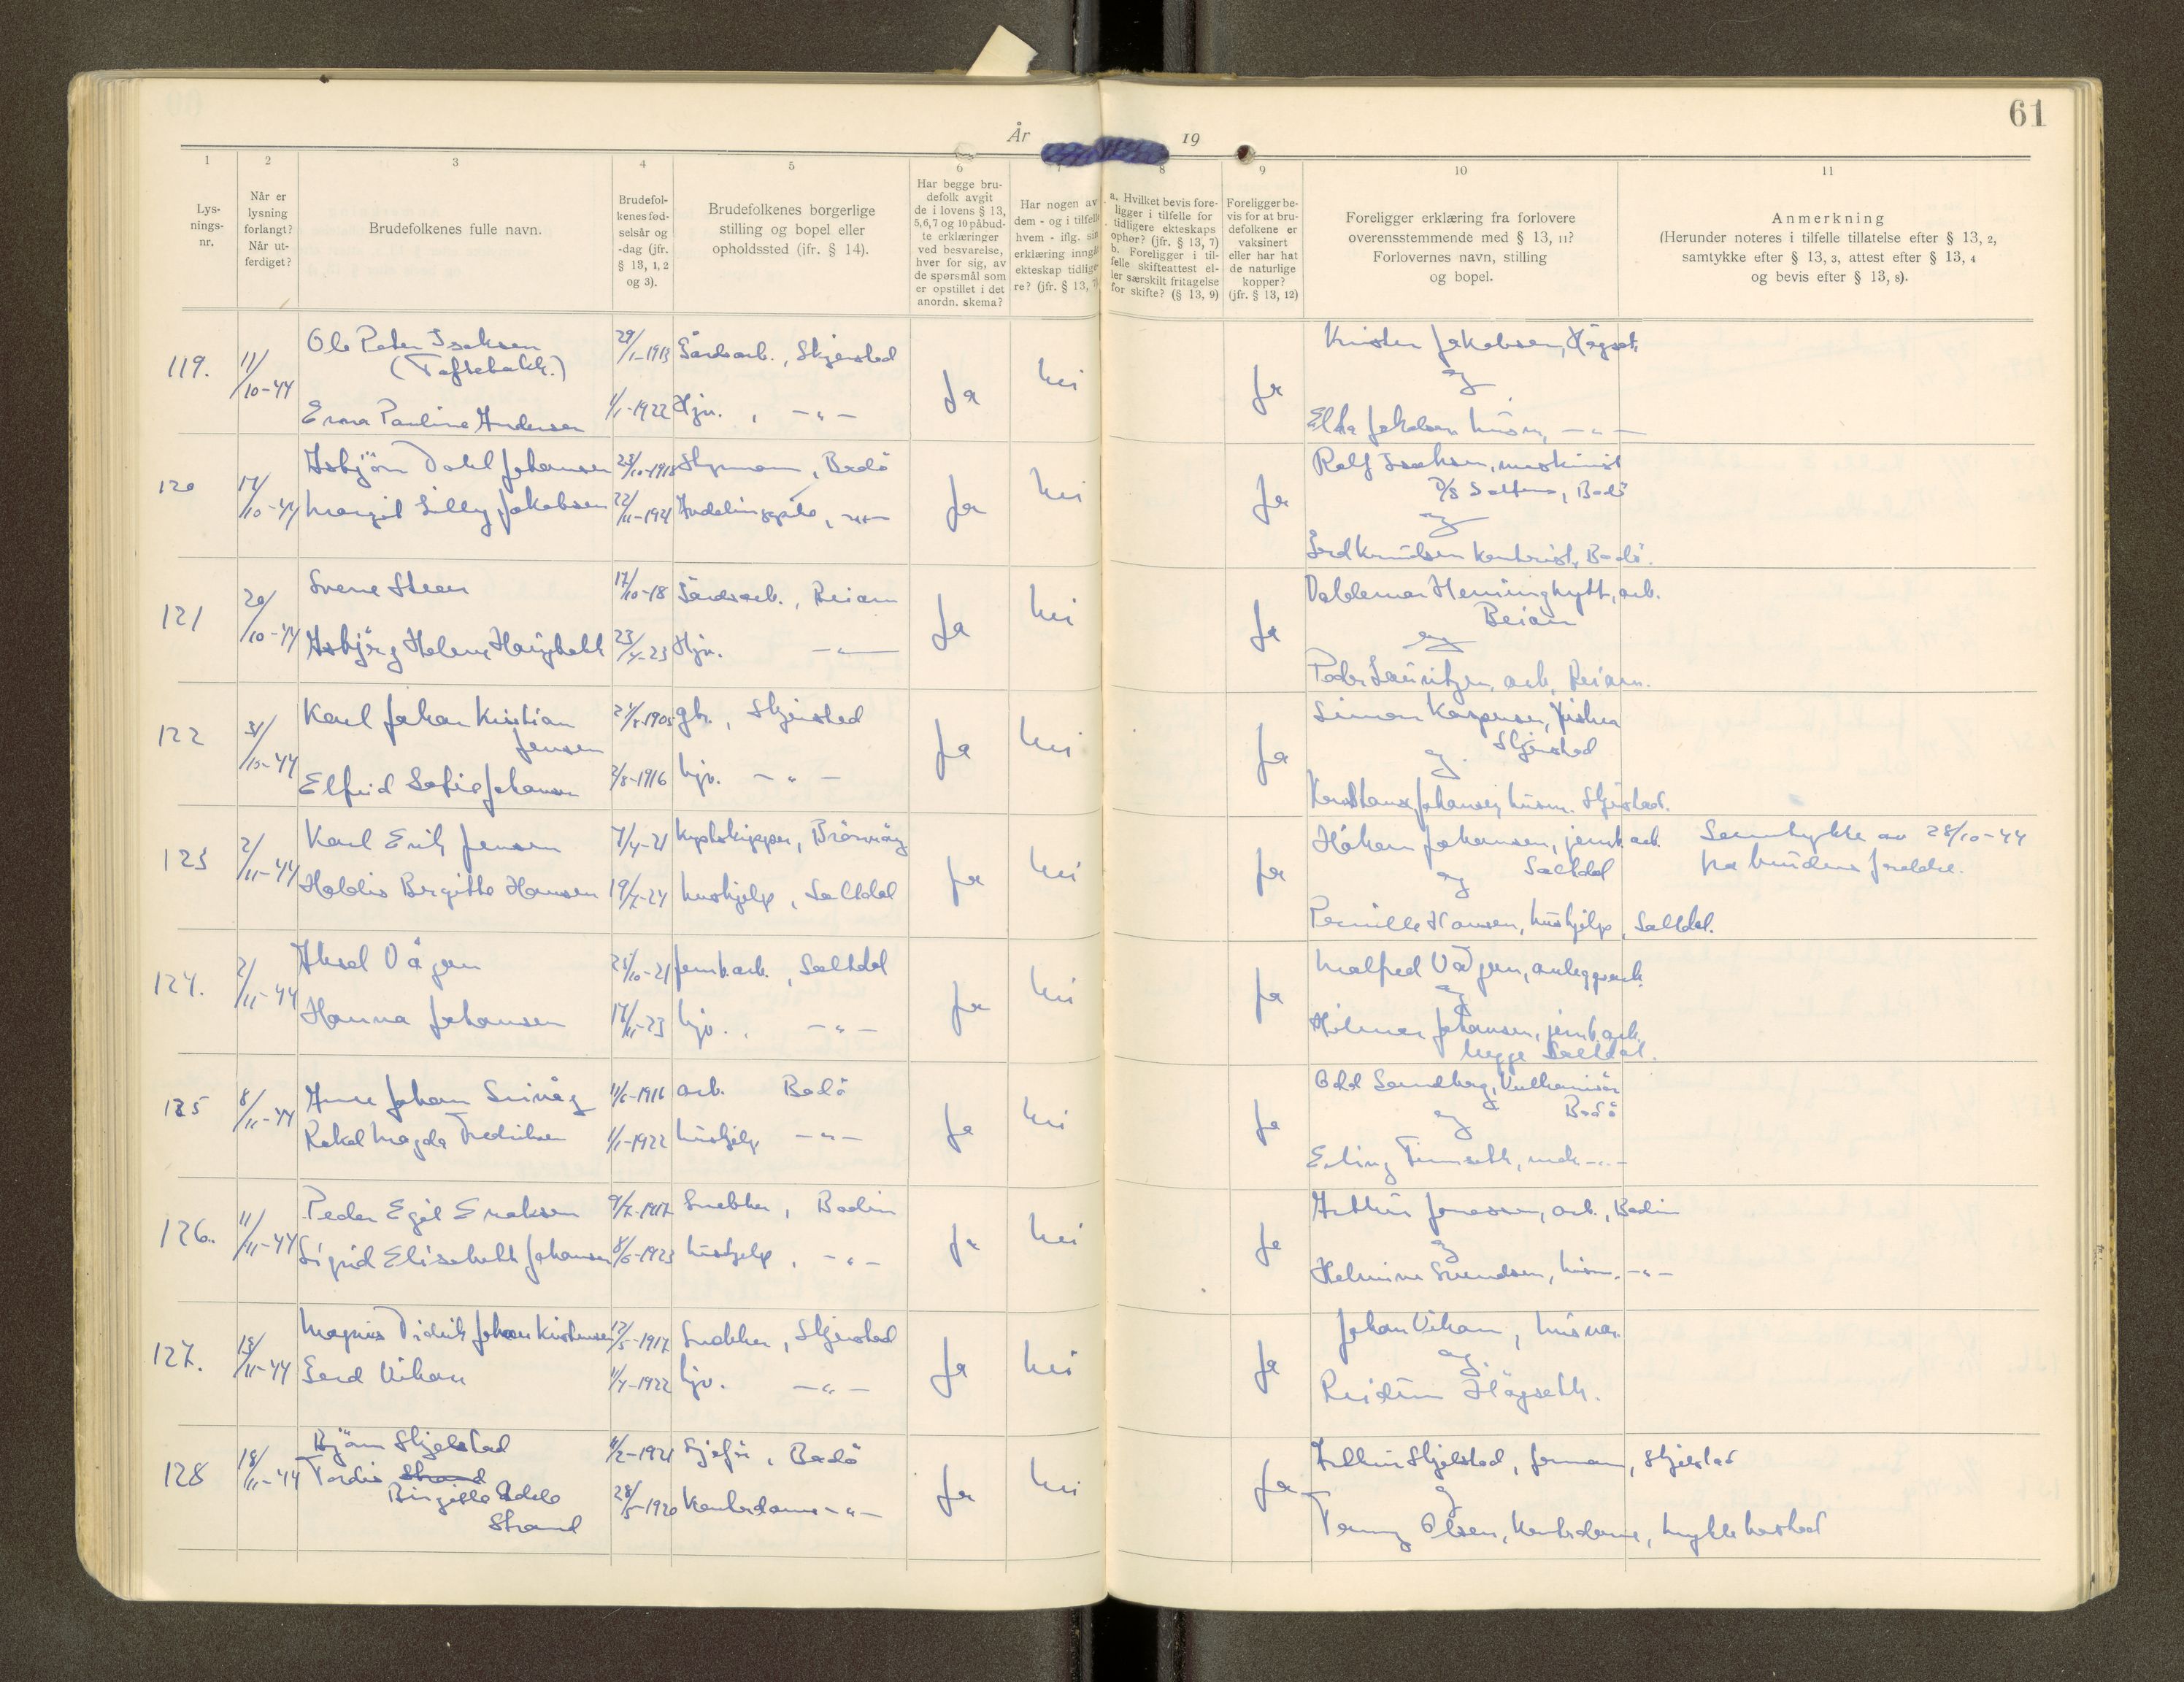 61
År 19
1 2 3 4 5 6 8 9 10 11
Lys-
nings-
nr.
Når er
lysning
forlangt?
Når ut-
ferdiget?
Brudefolkenes fulle navn.
Brudefol-
kenes fød-
selsår og
-dag (jfr.
§ 13, 1, 2
og 3).
Brudefolkenes borgerlige
stilling og bopel eller
opholdssted (ifr. § 14).
Har begge bru-
defolk avgit
de i lovens § 13,
5,6,7 og 10 påbud-
te erklæringer
ved besvarelse,
hver for sig, av
de spørsmål som
er opstillet i det
anordn. skema?
Har nogen av
dem - og i tilfelle
hvem - iflg. sin
erklæring inngå
ekteskap tidlige-
re? (jfr. § 13, 7)
a. Hvilket bevis fore-
ligger i tilfelle for
tidligere ekteskaps
ophør? (jfr. § 13, 7)
b. Foreligger i til-
felle skifteattest el-
ler særskilt fritagelse
for skifte? (§ 13, 9)
Foreligger be-
vis for at bru-
defolkene er
vaksinert
eller har hat
de naturlige
kopper?
(jfr. § 13, 12)
Foreligger erklæring fra forlovere
overensstemmende med § 13, 11?
Forlovernes navn, stilling
og bopel.
Anmerkning
(Herunder noteres i tilfelle tillatelse efter § 13, 2,
samtykke efter § 13, 3, attest efter § 13, 4
og bevis efter § 13, 8).
119. 11/10-44 Ole Peter Isaksen 29/1-1913 Gårdsarb., Skjerstad Ja Nei Ja Jakobsen,
Erna Pauline Andersen 1/1-1922 Hjv., -"-
og
Jakobsen husm. -"-
120 17/10-44 Asbjörn Dahl Johansen 23/10-1918 Bodö Ja Nei Ja Rolf Isaksen, maskinist
Margit Lilly Jakobsen 22/11-1921 -"-
D/S Salten, Bodö
og
Gerd Knudsen kontorist, Bodö.
121 20/10-44 Sverre Steen 17/10-18 Gårdsarb., Beiarn Ja Nei Ja arb.
Beiarn
Asbjörg Helene 23/4-23 Hjv. -"-
og
Peder Lauritzen, arb. Beiarn.
122 31/10-44 Karl Johan Kristian
Jensen gb., Skjerstad Ja Nei Ja Simon Kaspersen, fisker
Skjerstad
og
Elfrid Sofie Johansen 2/8-1916 hjv. -"-
Johansen, husm. Skjerstad.
123 2/11-44 Karl Erik Jensen 7/4-21 Ja Nei Ja Håkon Johansen, jernb.arb.
Saltdal
Samtykke av 28/10-44
fra brudens foreldre.
Birgitte Hansen 19/7-24 hushjelp, Saltdal
og
Pernille Hansen, hushjelp, Saltdal.
124. 2/11-44 Aksel Vågen 25/10-21 jernb.arb., Saltdal Ja Nei Ja Malfred Vågen, anleggsarb.
og
Hanna Johansen 17/11-23 hjv. -"-
Hilmar Johansen, jernb.arb.
begge Saltdal.
125 8/11-44 Johan 11/6-1916 arb. Bodö Ja Nei Ja Odd Sandberg, Vulkanisör
Bodö
og
Rakel Magda Fredriksen 1/1-1922 hushjelp -"-
Erling -"-
126. 11/11-44 Peder Egil 9/7-1917 Snekker, Bodin Ja Nei Ja Arthur Jonassen, arb., Bodin
og
Sigrid Elisabeth Johansen 8/6-1923 hushjelp, -"-
Svendsen, husm. -"-
127. 13/11-44 Magnus Didrik Johan Kristensen 12/5-1917 Snekker, Skjerstad Ja Nei Ja Johan Vikan,
og
Gerd Vikan 11/4-1922 hjv. -"-
Reidun Högseth.
128 18/11-44 Björn Skjelstad 11/2-1921 Sjåfør, Bodö Ja Nei Ja Skjelstad, Skjelstad
Tordis Strand
Birgitte Adele
Strand 28/5-1920 Kontordame -"-
og
Olsen, Kontordame,